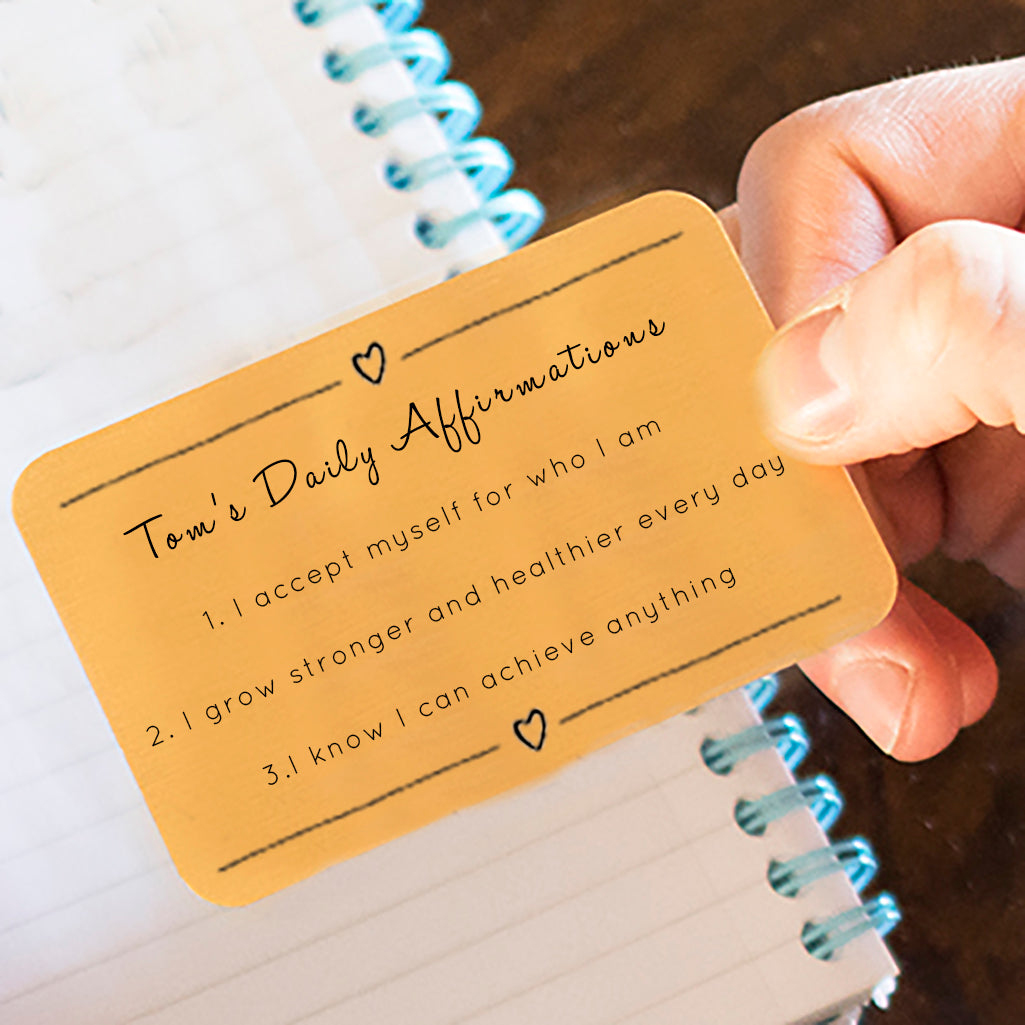 Tom's Daily Affirmations
1. I accept myself for who I am
2. I grow stronger and healthier every day
3.I know I can achieve anything